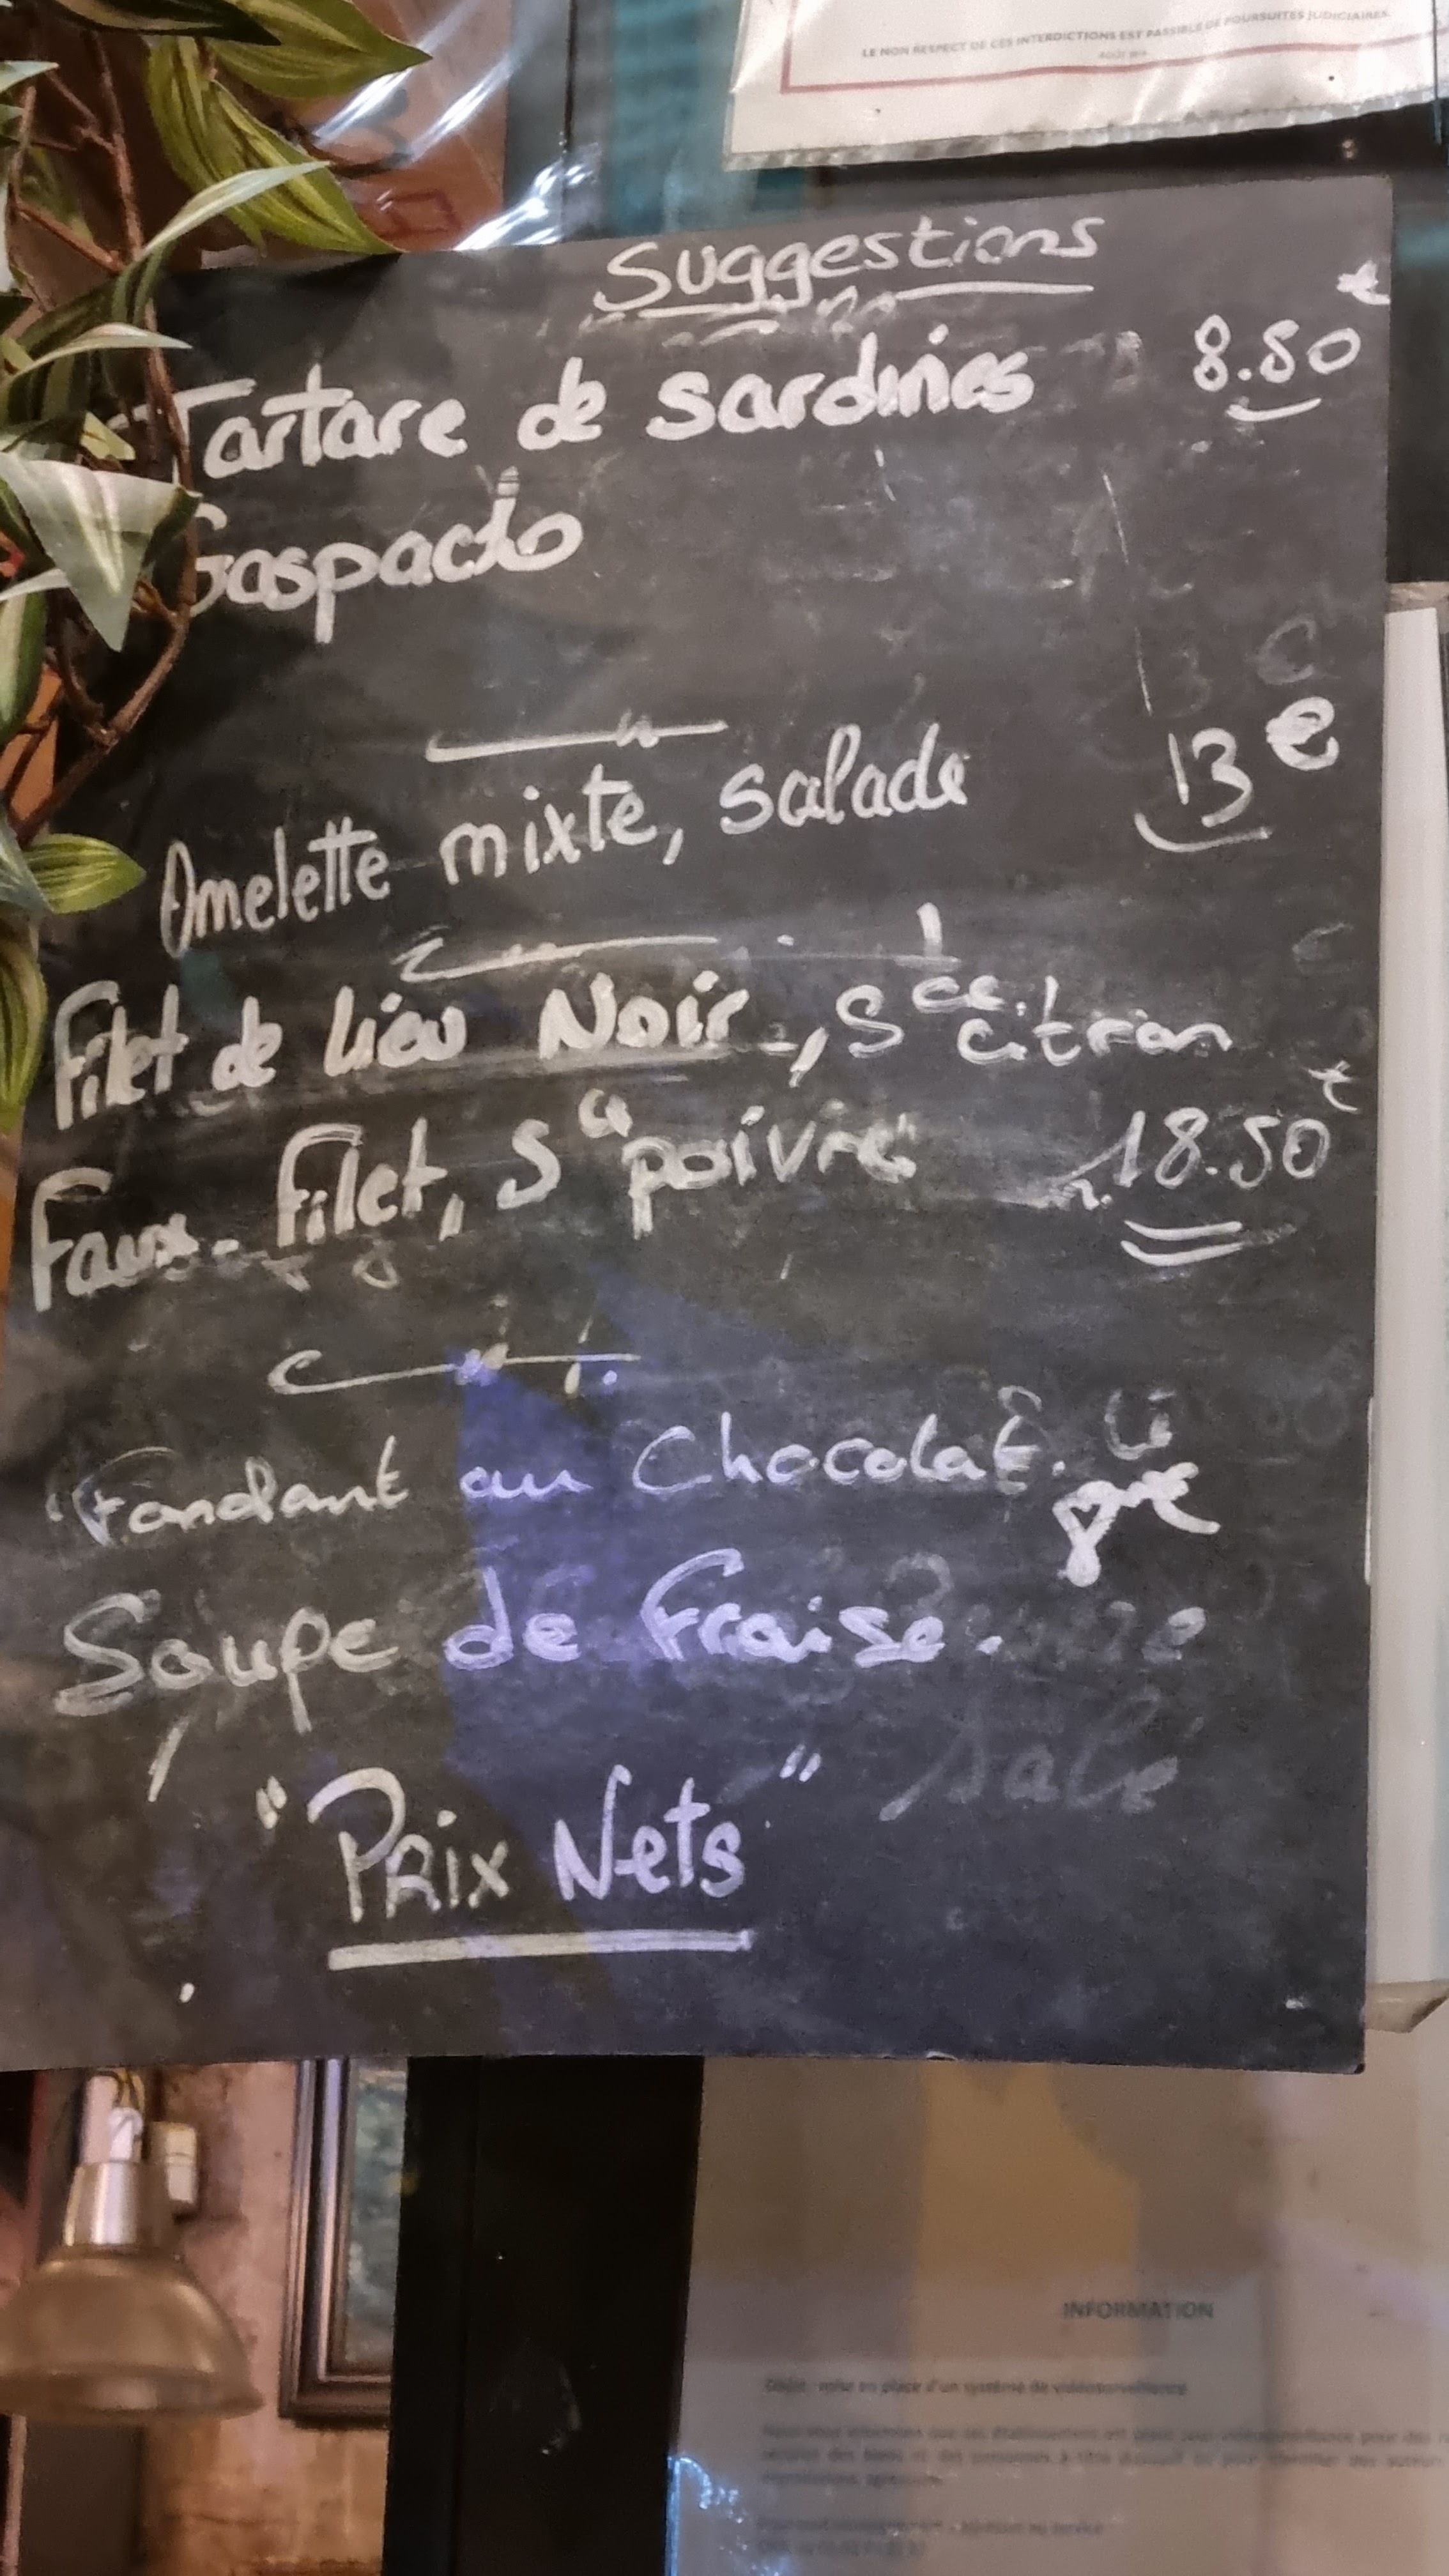 LE NON RESPECT DE CES INTERDICTIONS EST PASSIBLE DE POURSUITES JUDICIAIRES.
Suggestions
Tartare de sardines 8.80 €
Gaspacho
Omelette mixte, salade 13 €
Filet de Lieu Noir, Sce citron
Faux-Filet, Sce poivre 18.50 €
Fondant au Chocolat.
Soupe de Fraise.
salé
"PRix Nets"
INFORMATION
Objet : mise en place d'un système de vidéosurveillance